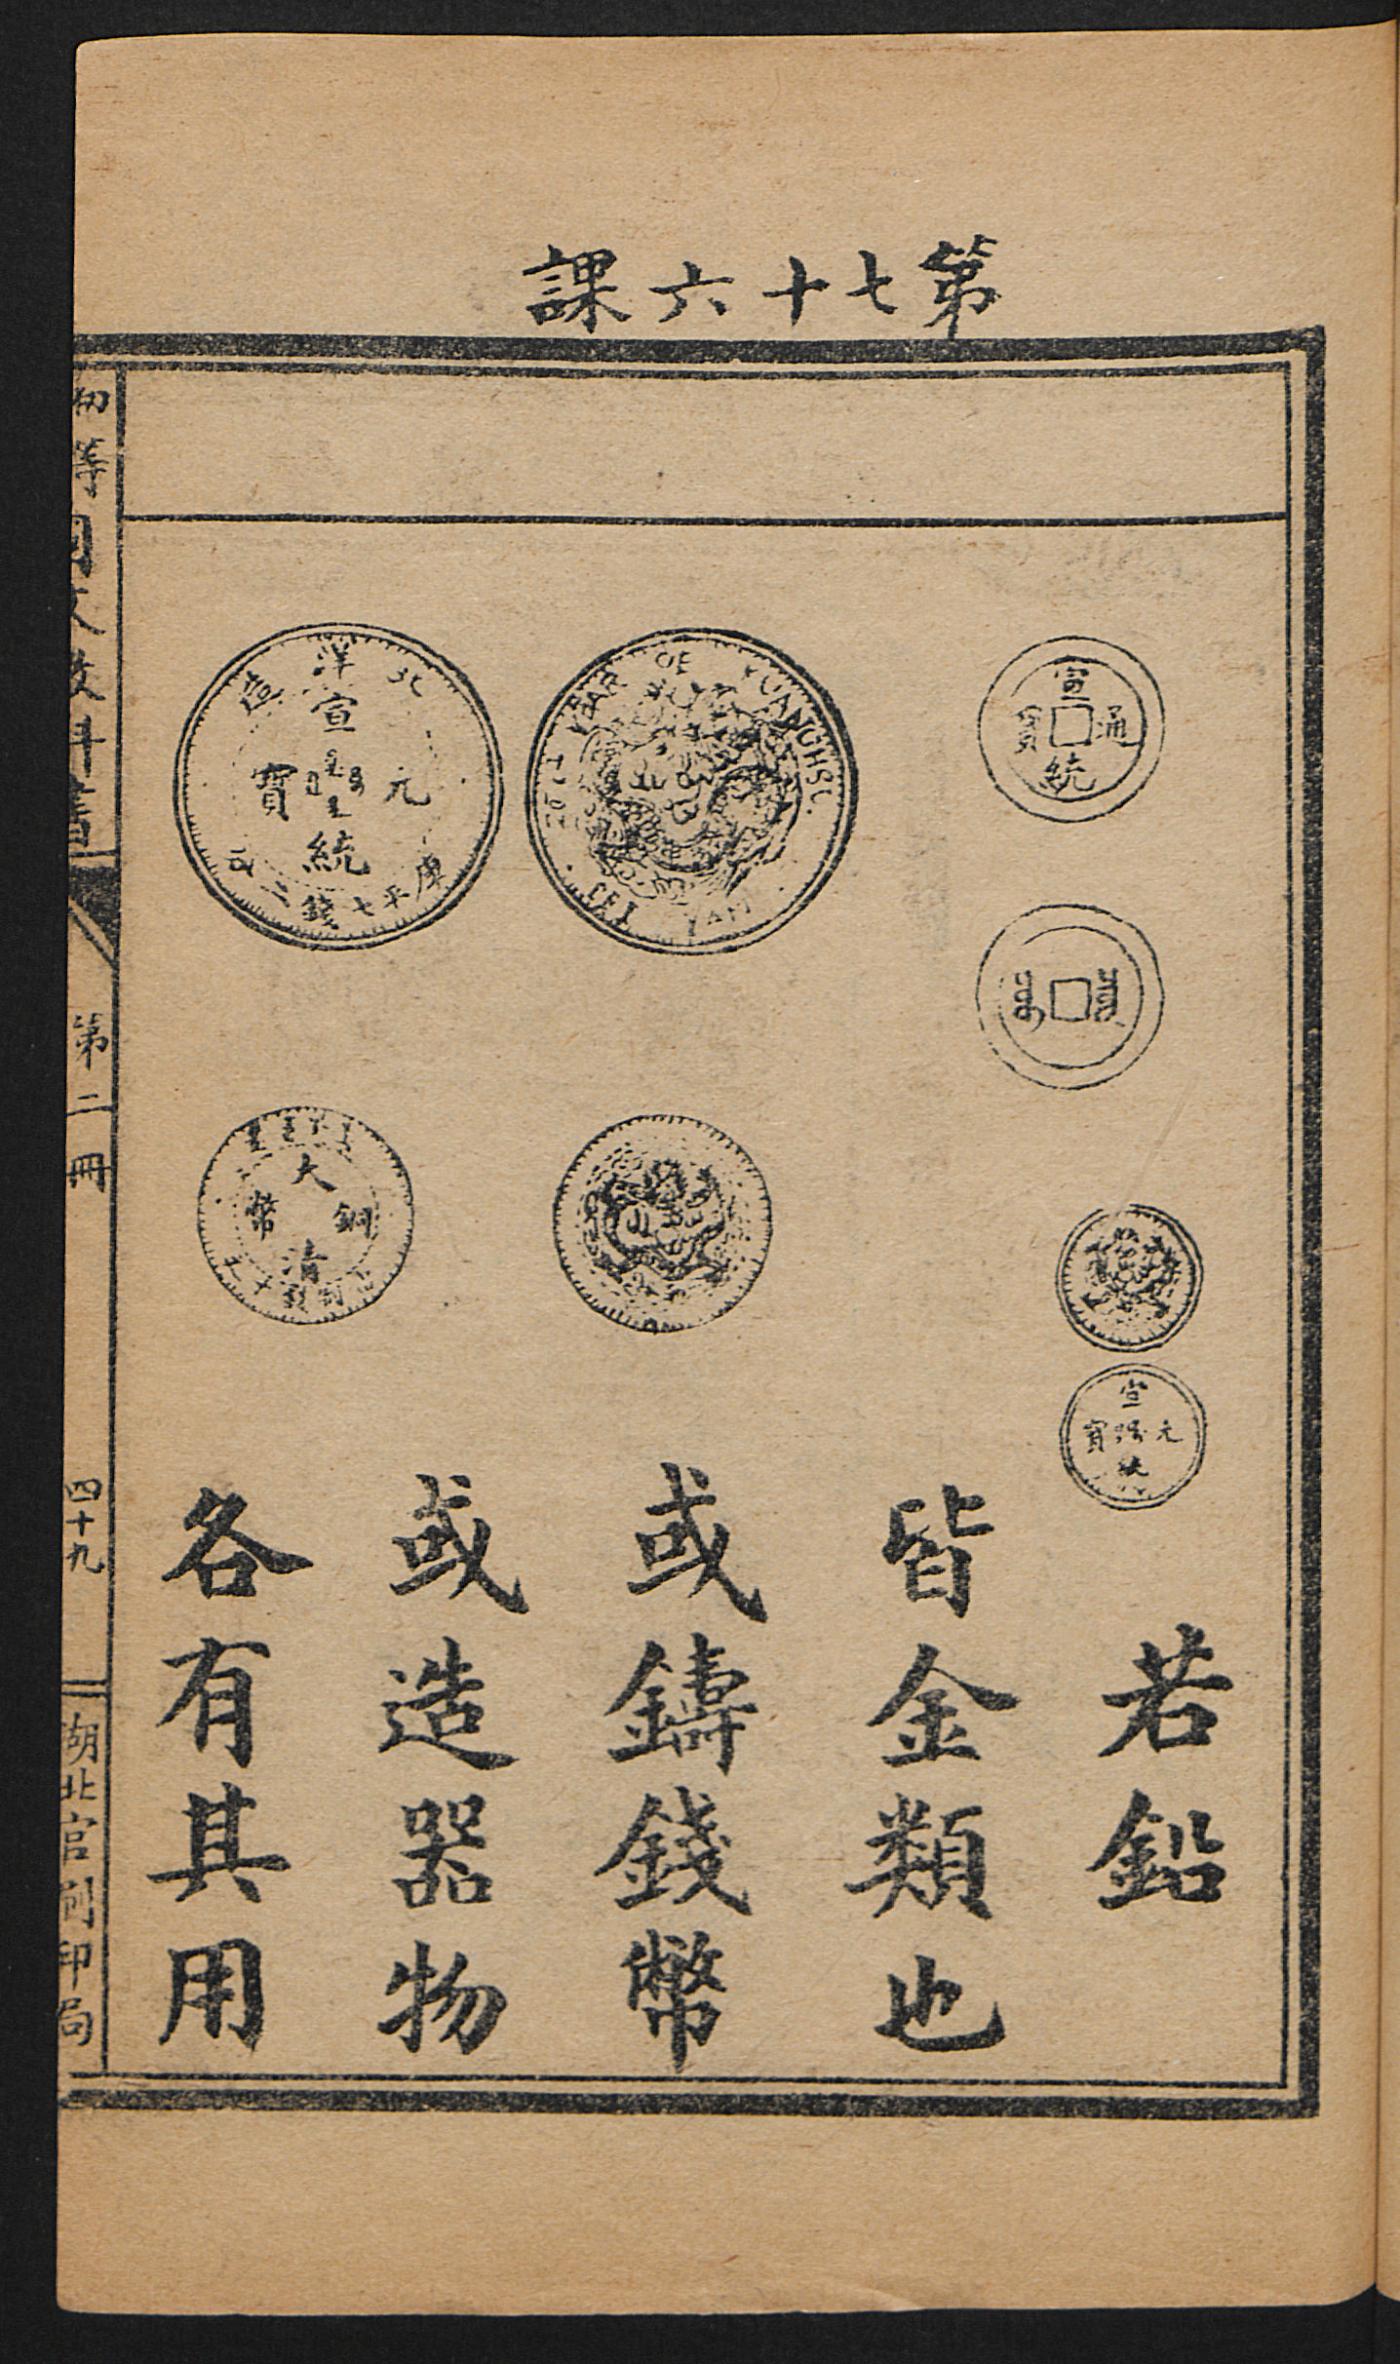 第七十六課
宣統通寶
宣統元寶
若鉛
皆金類也
或鑄錢幣
或造器物
各有其用
YEAR OF KUANGHSU
北洋
宣統元寶
庫平七錢二
大清銅幣
初等國文教科書
第二冊
四十九
湖北官刷印局